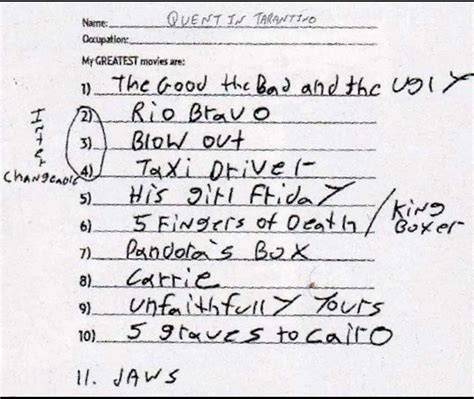 Name: QUENTIN TARANTINO
Occupation:
My GREATEST movies are:
1) The Good the Bad and the Ugly
2) Rio Bravo
3) Blow out
4) Taxi Driver
Interchangeable
5) His girl Friday
6) 5 Fingers of Death / King Boxer
7) Pandora's Box
8) Carrie
9) unfaithfully Yours
10) 5 graves to Cairo
11. JAWS